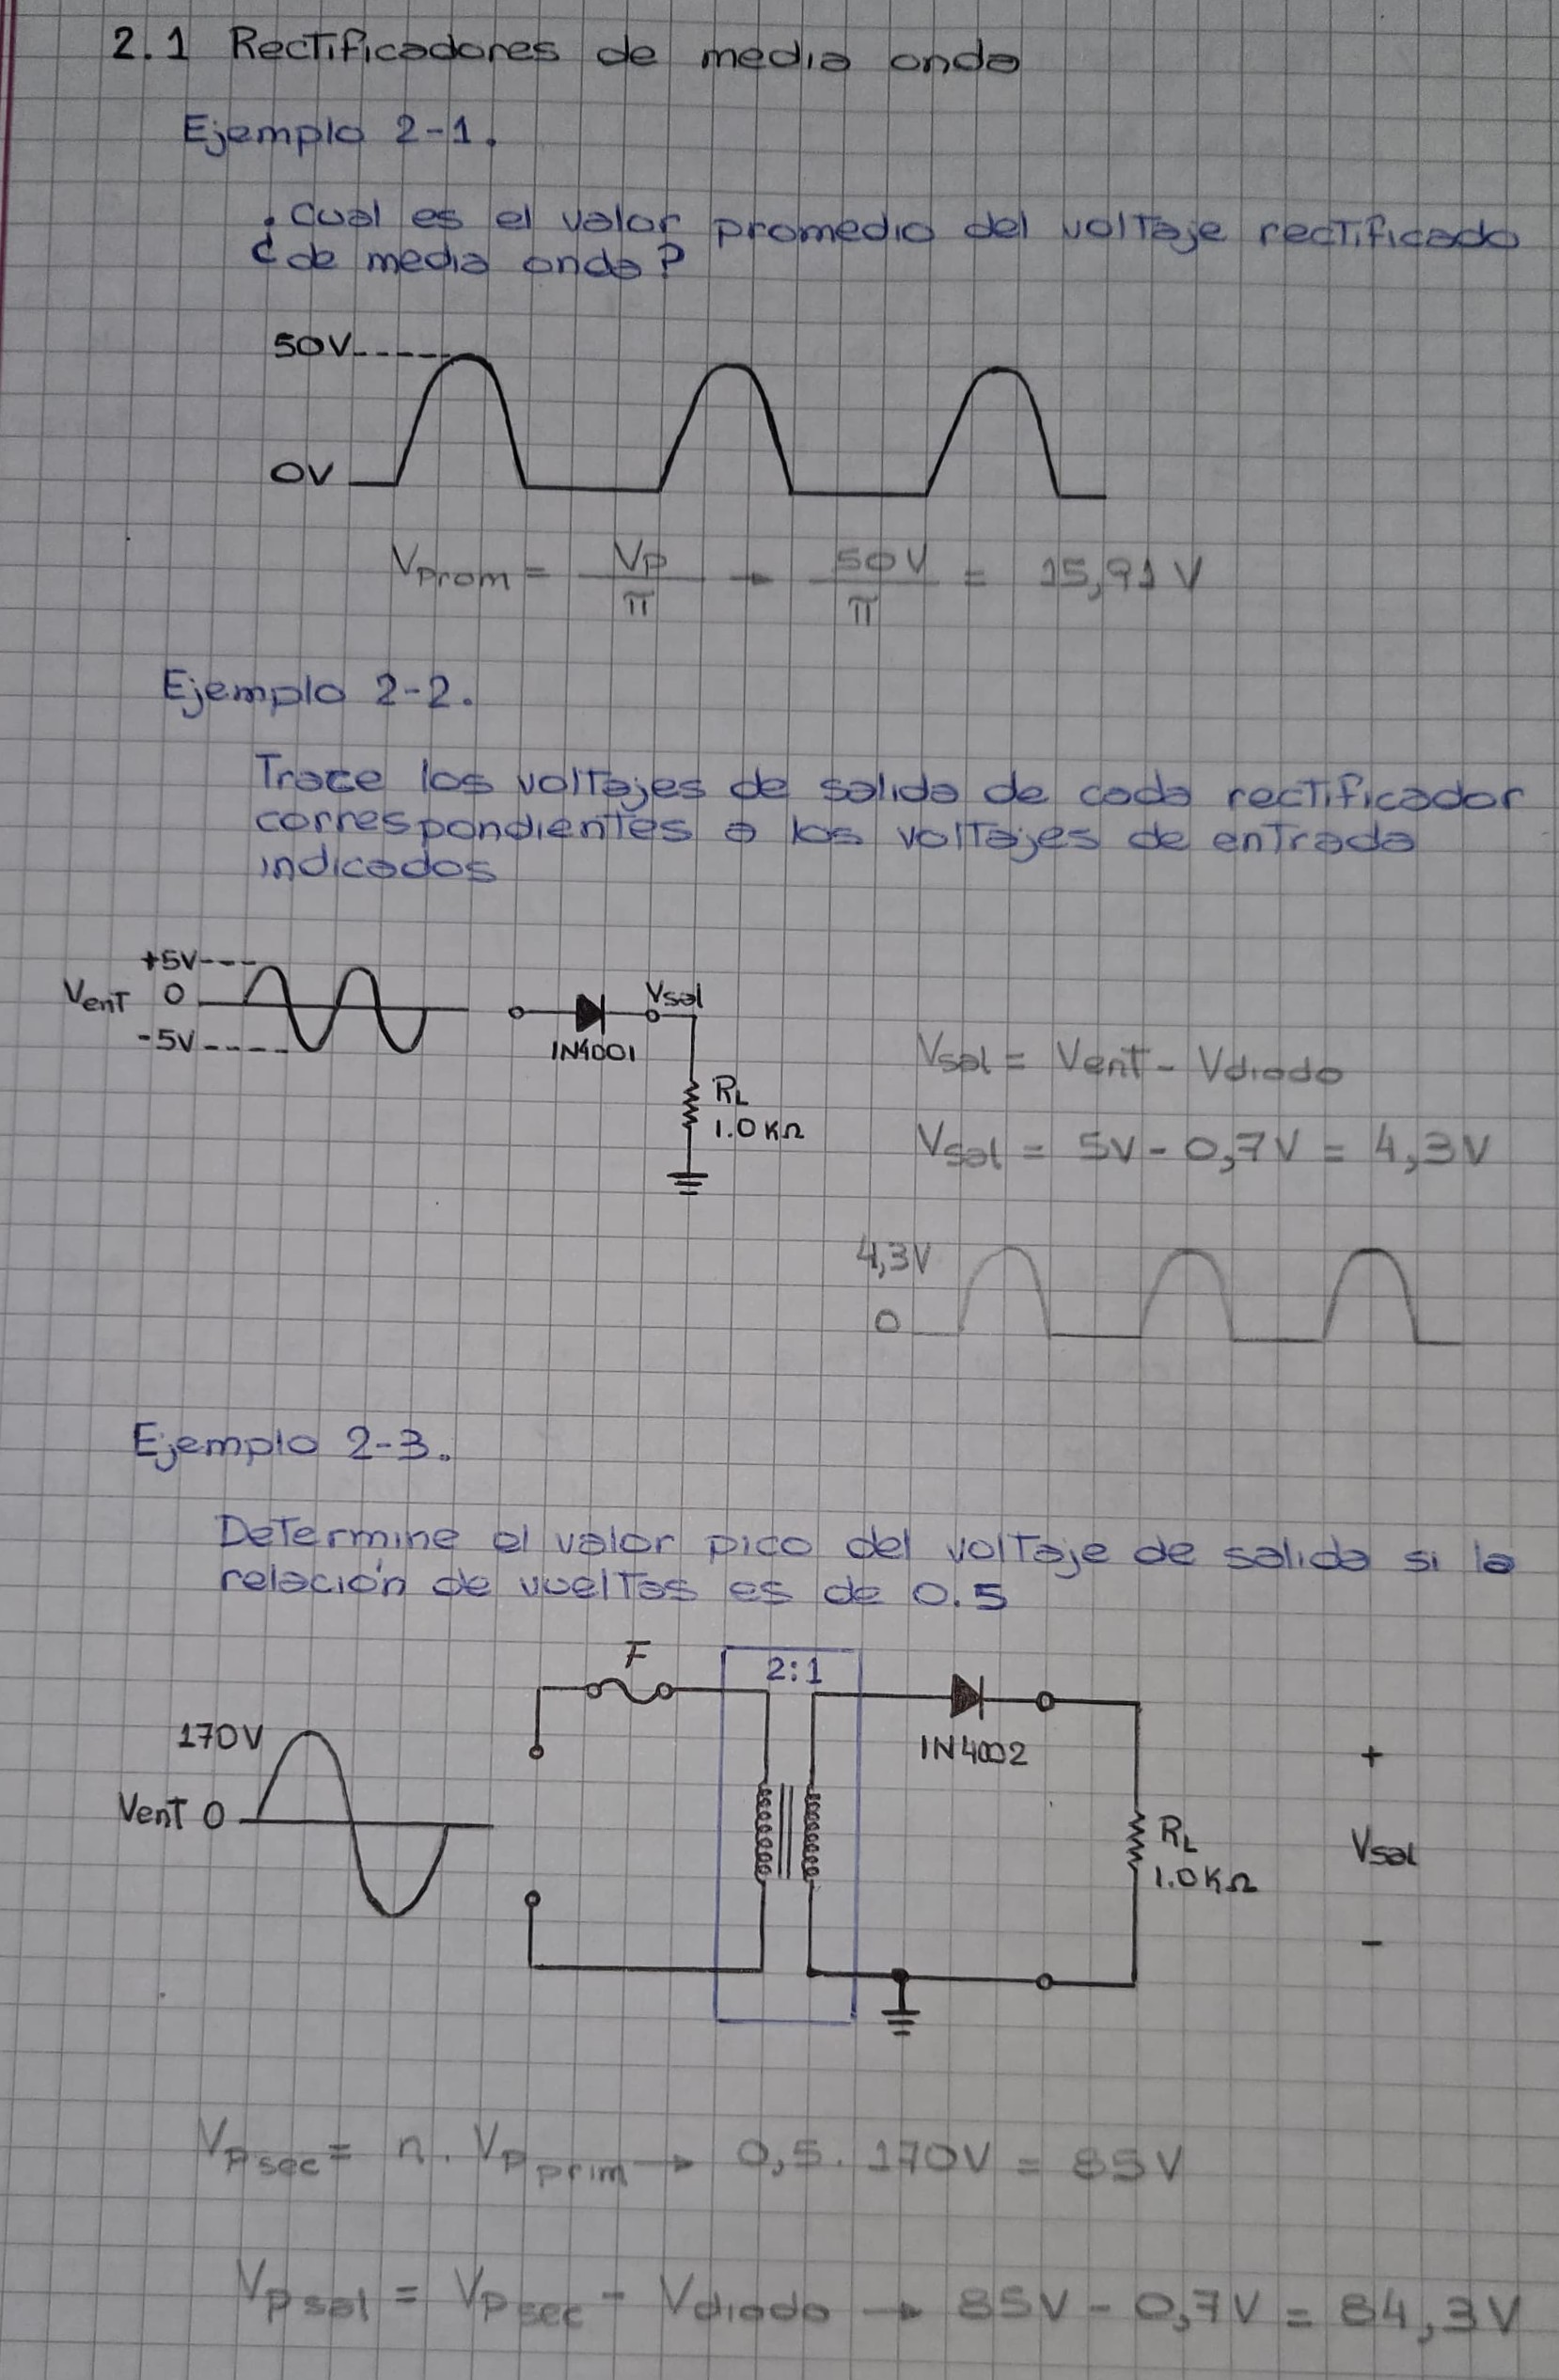 2.1 Rectificadores de media onda
Ejemplo 2-1.
¿Cual es el valor promedio del voltaje rectificado
de media onda?
50V
0V
Vprom = Vp/π → 50V/π = 15,91 V
Ejemplo 2-2.
Trace los voltajes de salida de cada rectificador
correspondientes a los voltajes de entrada
indicados
+5V
Vent 0
-5V
Vsal
1N4001
RL
1.0 KΩ
Vsal = Vent - Vdiodo
Vsal = 5V - 0,7V = 4,3V
4,3V
0
Ejemplo 2-3.
Determine el valor pico del voltaje de salida si la
relación de vueltas es de 0.5
F
2:1
170V
Vent 0
1N4002
+
RL
1.0KΩ
Vsal
-
Vp sec = n . Vp prim → 0,5 . 170V = 85V
Vp sal = Vp sec - Vdiodo → 85V - 0,7V = 84,3V